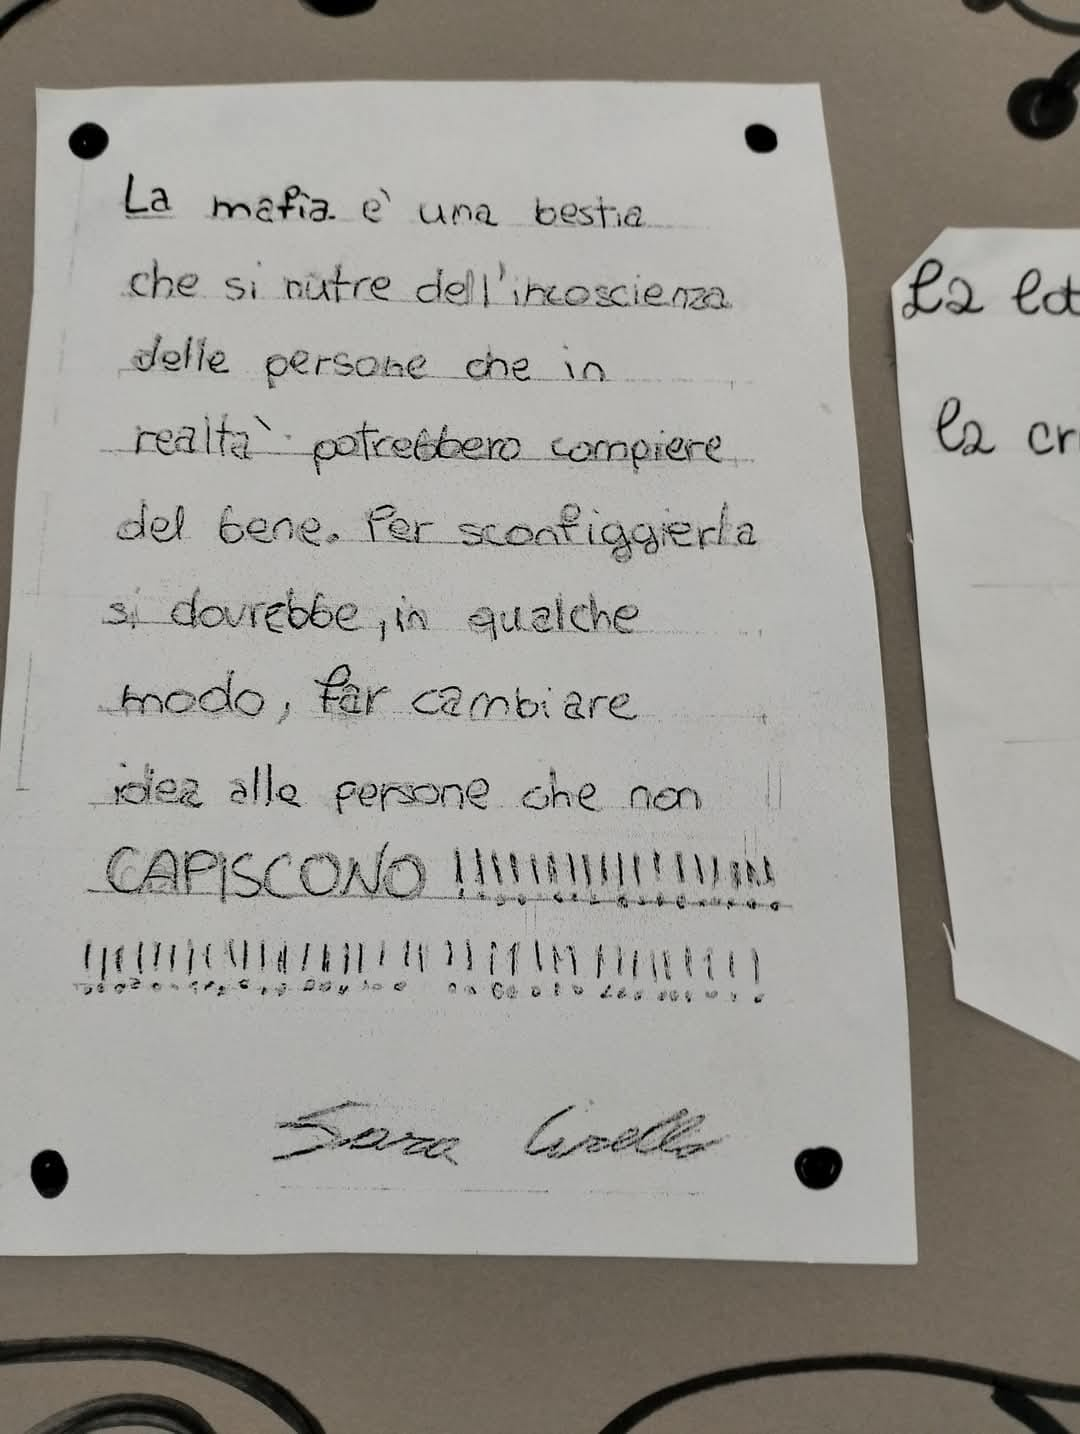 La mafia è una bestia
che si nutre dell'incoscienza
delle persone che in
realtà potrebbero compiere
del bene. Per sconfiggierla
si dovrebbe, in qualche
modo, far cambiare
idea alle persone che non
CAPISCONO !!!!!!!!!!!!!!!!!!!!!!
!!!!!!!!!!!!!!!!!!!!!!!!!!!!!!!!!!!!!!!!
Sara Cirello
La
la cr